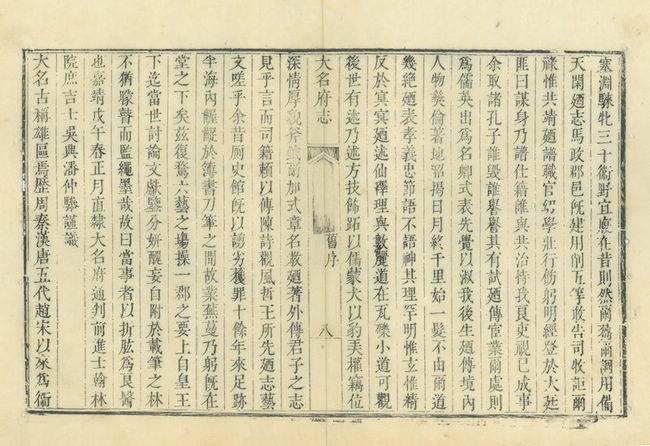 塞淵騋牝三十衞野宜廄在昔則然爾茲爾調用備
天閑廼志馬政郡邑旣建用削五等敢告司牧詎爾
祿惟共靖廼譜職官幼學壯行飭躬明經登於大廷
匪曰謀身乃譜仕籍誰與共治恃我良吏覛已成事
余取諸孔子誰毀誰譽譽其有試廼傳宦業爾處則
爲儒英出爲名卿式表先覺以淑我後生廼傳境內
人物彛倫著地昭揭日月終千里始一髮不由爾道
幾絶廼表孝義忠節語不語神其理罕明惟玄惟精
反於寞寞廼述仙釋理與數麗道在瓦礫小道可觀
後世有述乃述方技飾跖以儒蒙犬以豹美權竊位
大名府志
舊序
八
深情厚貌斧鉞前加式章名教廼著外傳君子之志
見乎言而司籍賴以傳陳詩觀風哲王所先廼志藝
文嗟乎余昔厠史館旣以謭劣獲罪十餘年來足跡
半海內齷齪於簿書刀筆之間故業蕪蔓乃躬旣在
堂之下矣茲復騖六藝之塲操一郡之要上自皇王
下迄當世討論文獻鑒分妍醜妄自附於載筆之林
不猶矇瞽而監繩墨哉故曰當事者以折肱爲良醫
也嘉靖戊午春正月直隷大名府通判前進士翰林
院庶吉士吳興潘仲驂謹識
大名古稱雄區焉歷周秦漢唐五代趙宋以來爲衞